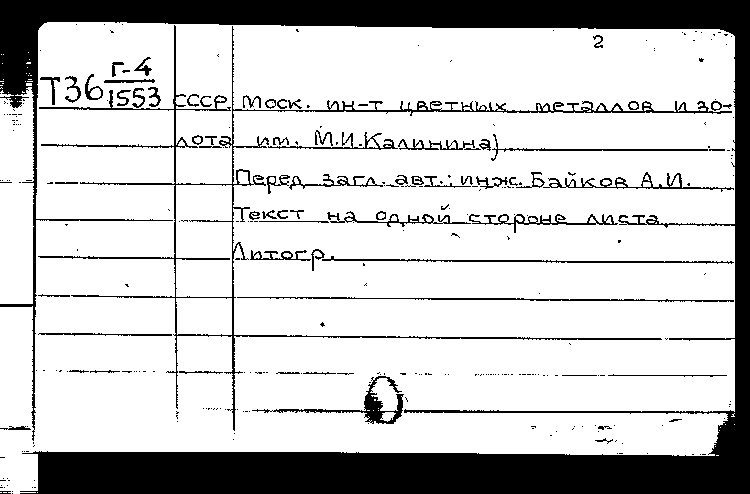 2
Т36 Г-4/1553
СССР. Моск. ин-т цветных металлов и зо-
лота им. М.И.Калинина)
Перед загл. авт.: инж. Байков А.И.
Текст на одной стороне листа.
Литогр.